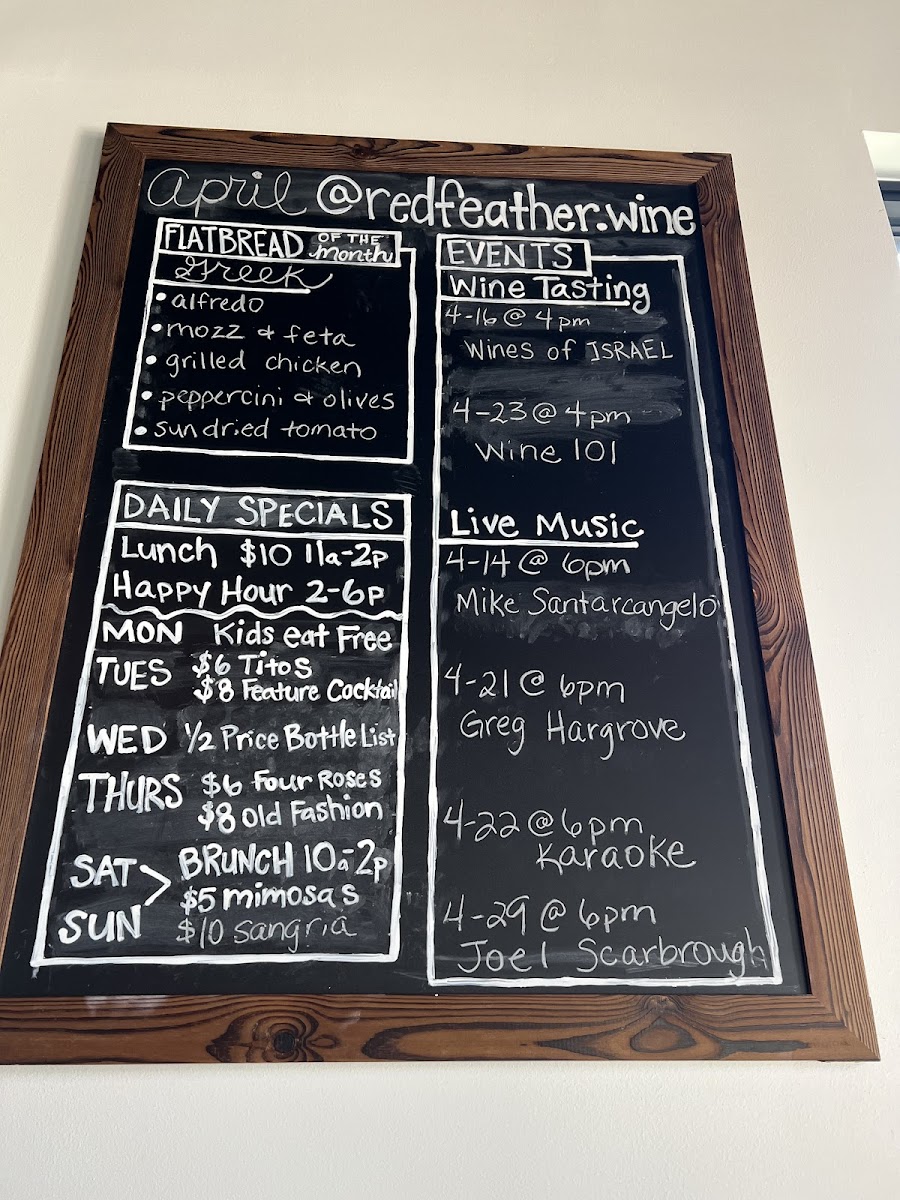 april @redfeather.wine
FLATBREAD OF THE month
Greek
• alfredo
• mozz & feta
• grilled chicken
• peppercini & olives
• sundried tomato
DAILY SPECIALS
Lunch $10 11a-2p
Happy Hour 2-6p
MON Kids eat Free
TUES $6 Titos
$8 Feature Cocktail
WED 1/2 Price Bottle List
THURS $6 Four Roses
$8 Old Fashion
SAT > BRUNCH 10a-2p
$5 mimosas
SUN $10 sangria
EVENTS
Wine Tasting
4-16 @ 4pm
Wines of ISRAEL
4-23 @ 4pm
Wine 101
Live Music
4-14 @ 6pm
Mike Santarcangelo
4-21 @ 6pm
Greg Hargrove
4-22 @ 6pm
Karaoke
4-29 @ 6pm
Joel Scarbrough